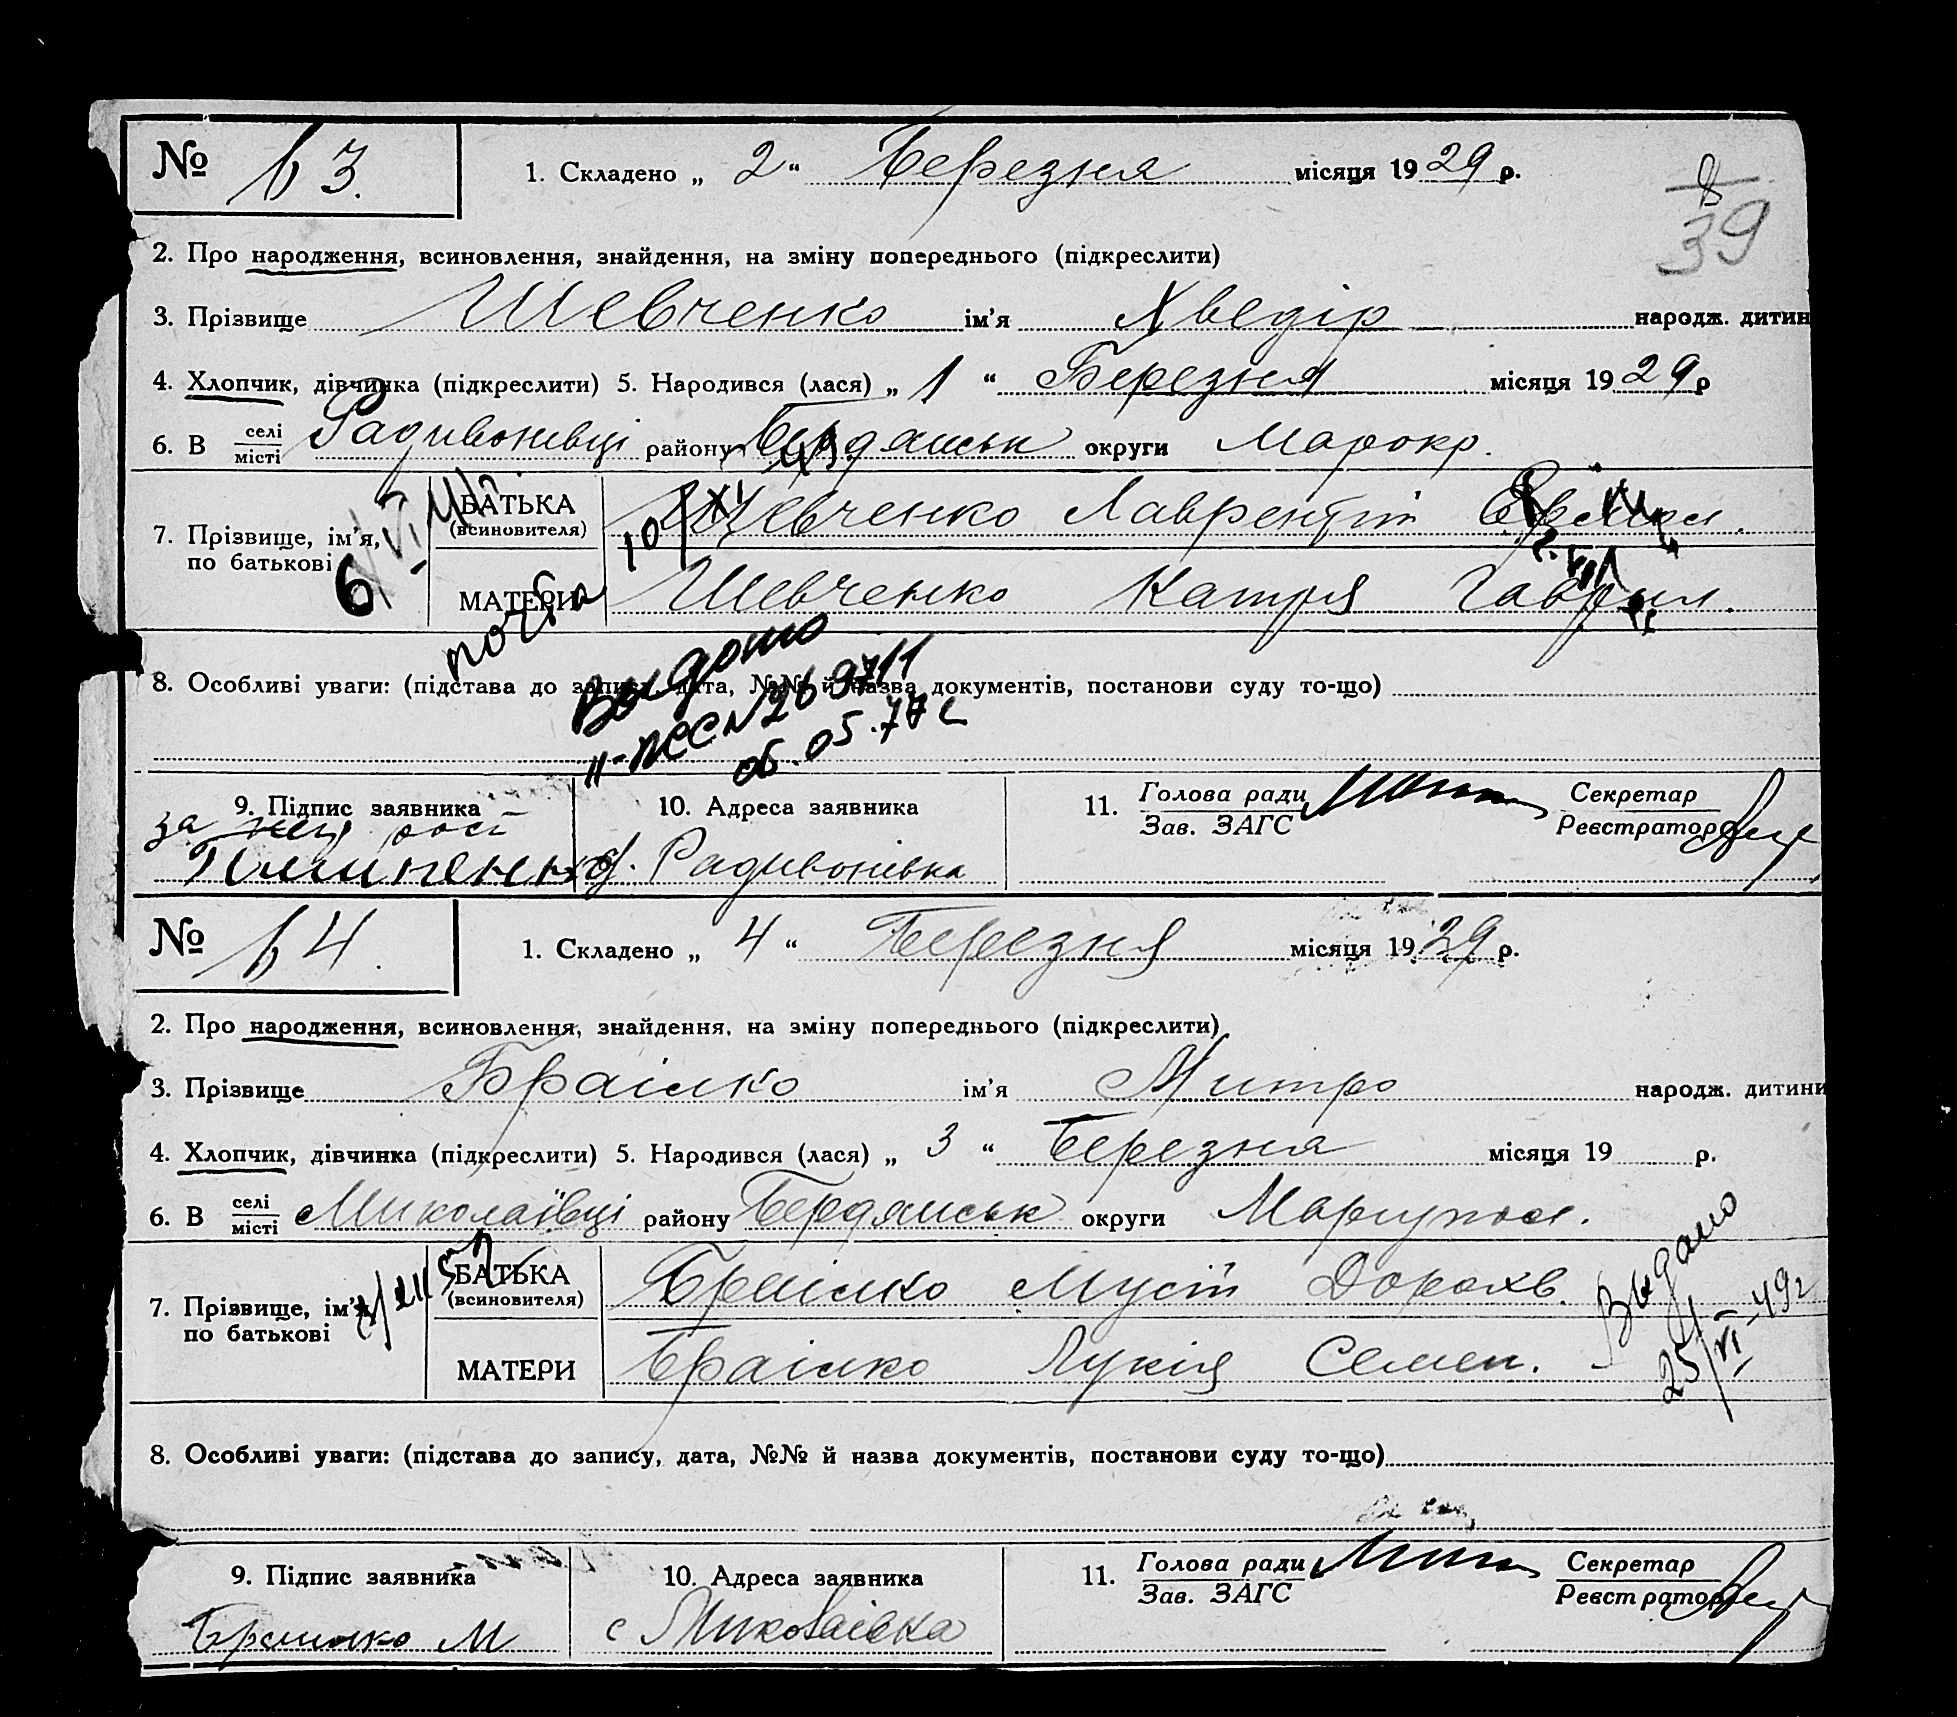 № 63. 1. Складено „ 2 “ Березня місяця 19 29 р.
8
39
2. Про народження, всиновлення, знайдення, на зміну попереднього (підкреслити)
3. Прізвище Шевченко ім'я Хведір народж. дитин
4. Хлопчик, дівчинка (підкреслити) 5. Народився (лася) „ 1 “ Березня місяця 19 29 р
6. В селі місті Радивонівці району Бердянськ округи Марокр.
7. Прізвище, ім'я, по батькові
БАТЬКА (всиновителя) Шевченко Лаврентій
МАТЕРИ Шевченко Катря Гаврил.
8. Особливі уваги: (підстава до запису, дата, №№ й назва документів, постанови суду то-що)
Выдано
06.05.77 г
9. Підпис заявника 10. Адреса заявника 11. Голова ради Зав. ЗАГС Секретар Реєстратор
за
с. Радивонівка
№ 64. 1. Складено „ 4 “ Березня місяця 19 29 р.
2. Про народження, всиновлення, знайдення, на зміну попереднього (підкреслити)
3. Прізвище Браілко ім'я Митро народж. дитини
4. Хлопчик, дівчинка (підкреслити) 5. Народився (лася) „ 3 “ Березня місяця 19 р.
6. В селі місті Миколаївці району Бердянськ округи Маріупол.
7. Прізвище, ім'я, по батькові
БАТЬКА (всиновителя) Браілко Мусій Дорохв.
МАТЕРИ Браілко Лукія Семен.
Выдано
25/VI-49г
8. Особливі уваги: (підстава до запису, дата, №№ й назва документів, постанови суду то-що)
9. Підпис заявника 10. Адреса заявника 11. Голова ради Зав. ЗАГС Секретар Реєстратор
Браілко М с Миколаівка